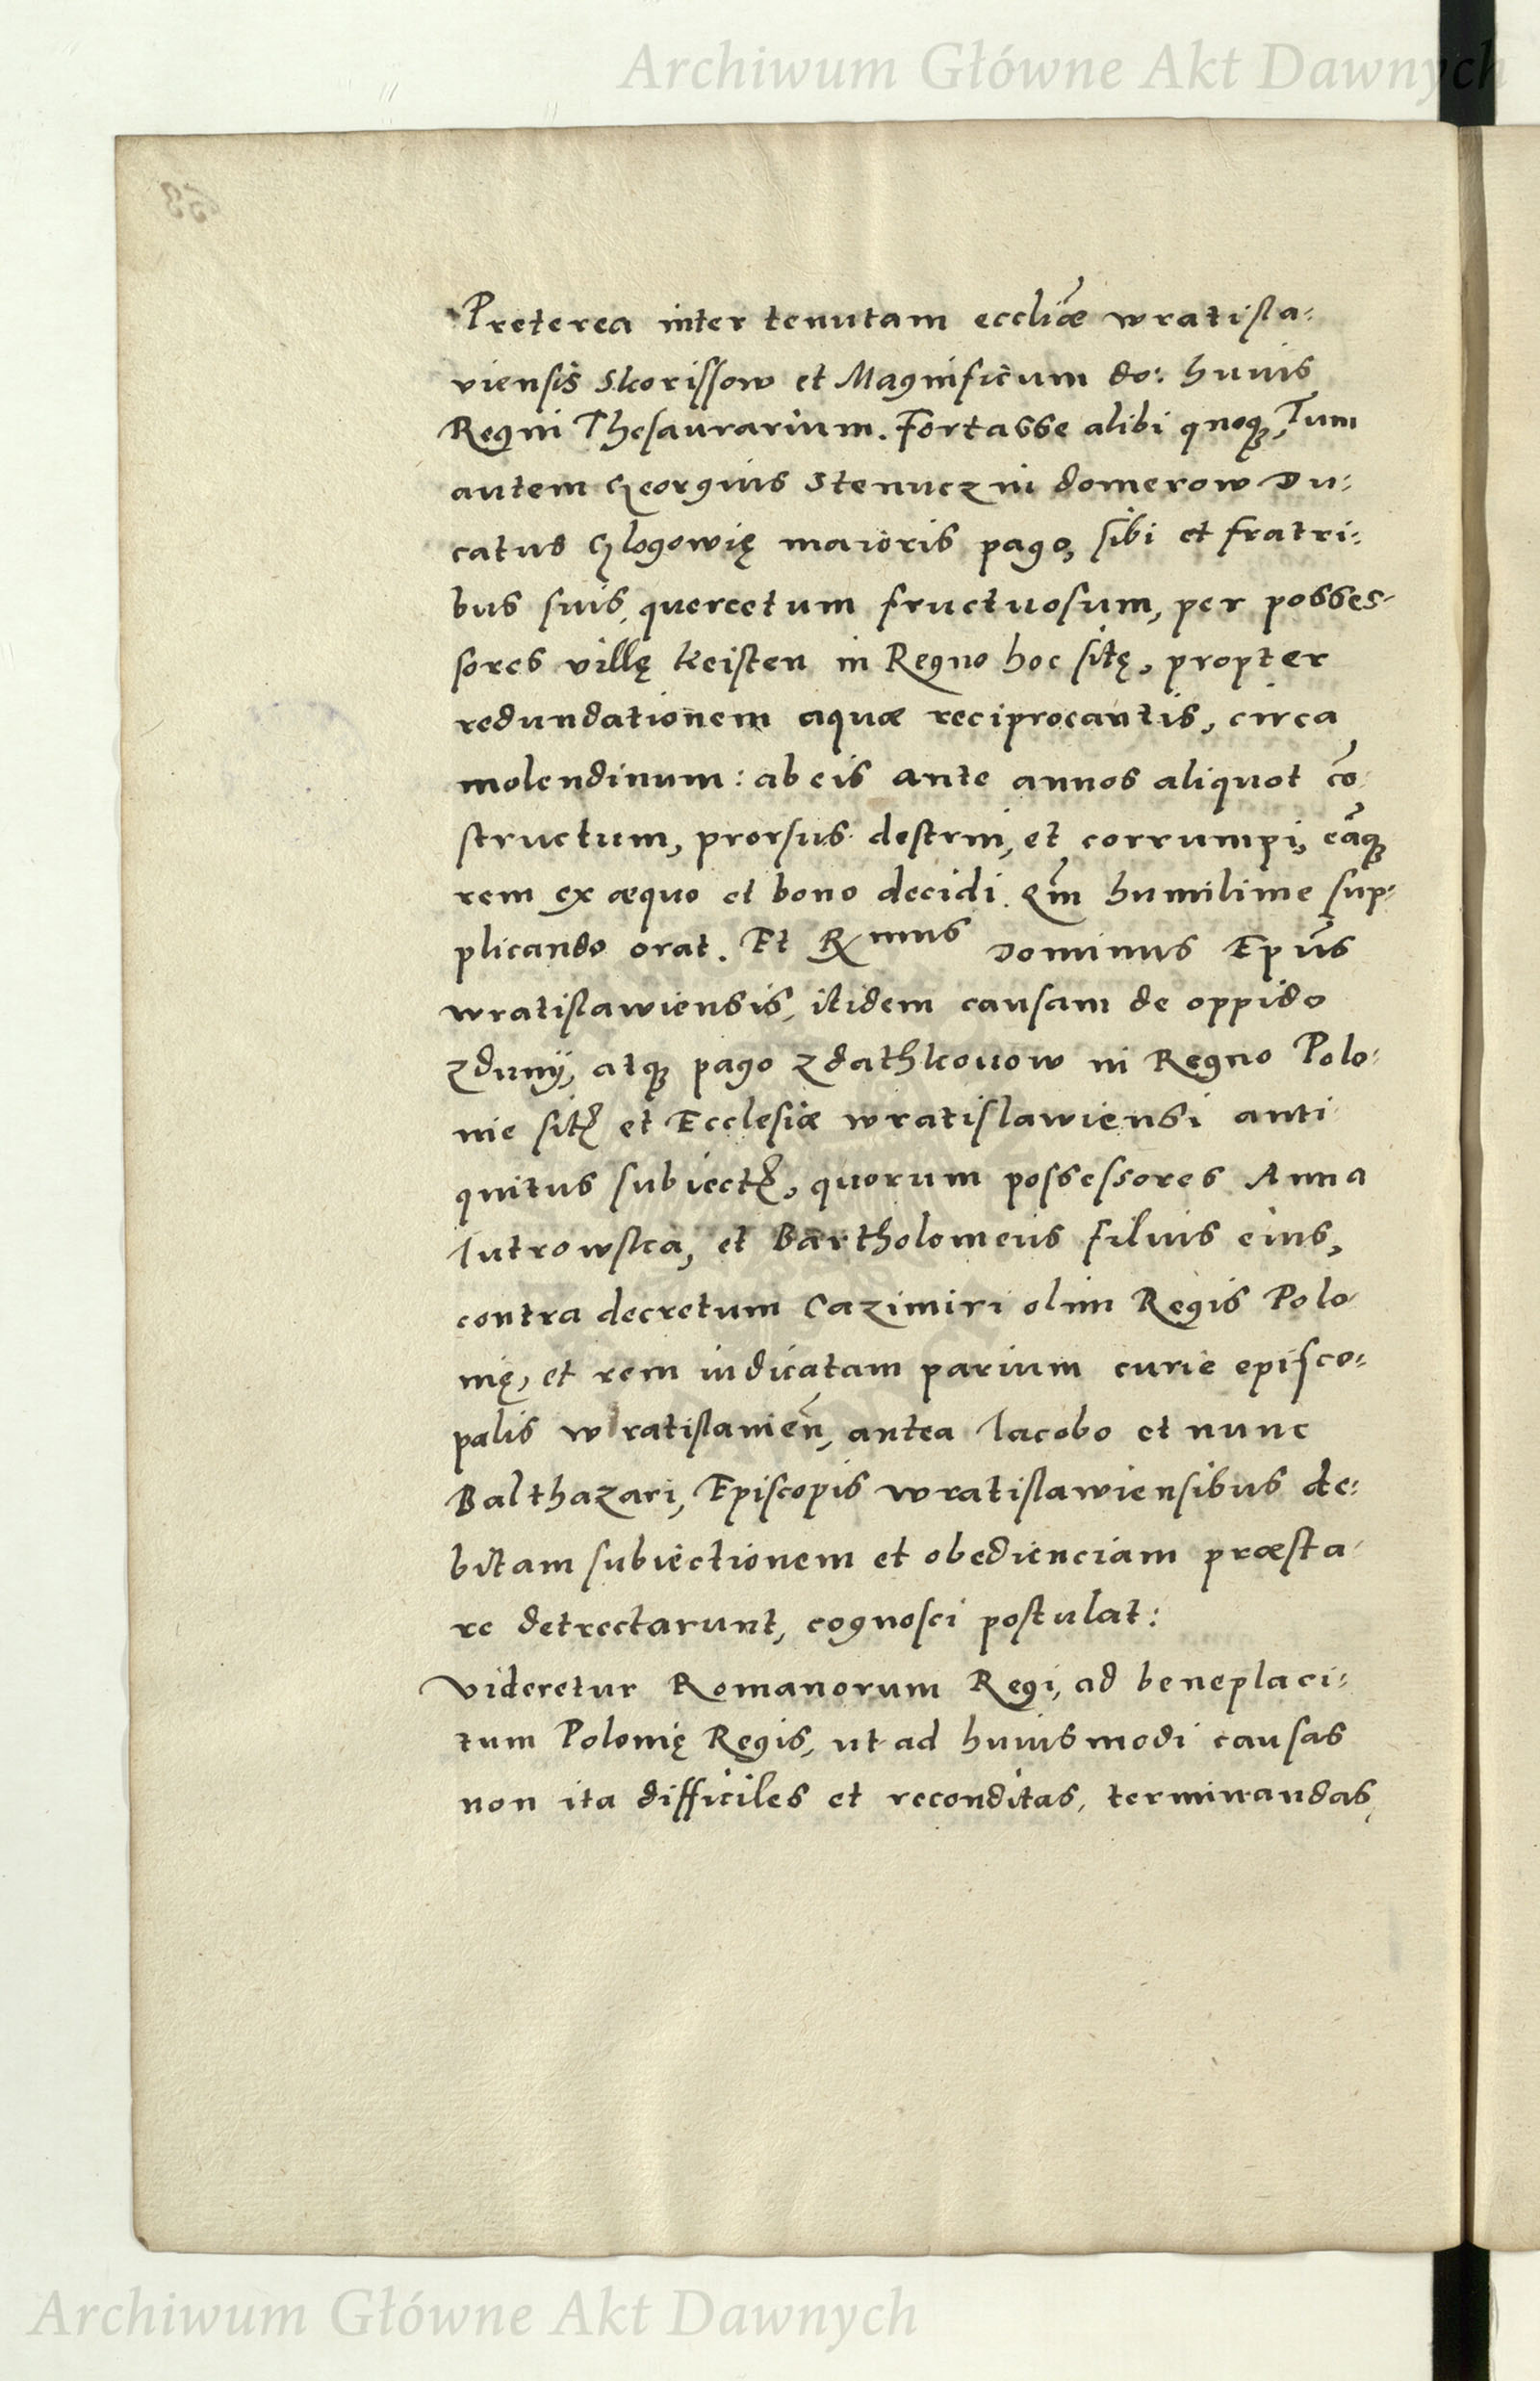 Archiwum Główne Akt Dawnych
Preterea inter tenutam eccli͞æ wratisla:
viensis Skorissow et Magnificum do: huius
Regni Thesaurarium. Fortasse alibi quoq3, Tum
autem Georgius Stenucz in domerow Du:
catus Glogowię maioris pago, sibi et fratri:
bus suis, quercetum fructuosum, per posses-
sores villę Keisten in Regno hoc sitę, propter
redundationem aquæ reciprocantis, circa
molendinum: ab eis ante annos aliquot co͞
structum, prorsus destrui, et corrumpi, ea͞q3
rem ex æquo et bono decidi. Qm͞ humilime sup-
plicando orat. Et Rmus Dominus Epu͞s
wratislawiensis, itidem causam de oppido
Zduny, atq3 pago Zdathkouow in Regno Polo:
nie sit͛ et Ecclesiæ wratislawiensi anti
quitus subiect͛, quorum possessores Anna
Iutrowska, et Bartholomeus filius eius,
contra decretum Cazimiri olim Regis Polo
nię, et rem iudicatam parium curie episco:
palis wratislauien͞, antea Iacobo et nunc
Balthazari, Episcopis wratislawiensibus de:
bitam subiectionem et obedienciam præsta
re detrectarunt, cognosci postulat:
Videretur Romanorum Regi, ad beneplaci:
tum Polonię Regis, ut ad huiusmodi causas
non ita difficiles et reconditas, terminandas,
Archiwum Główne Akt Dawnych